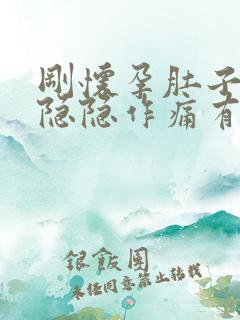 刚怀孕肚子
隐隐作痛有
银飯團
未经同意禁止转载